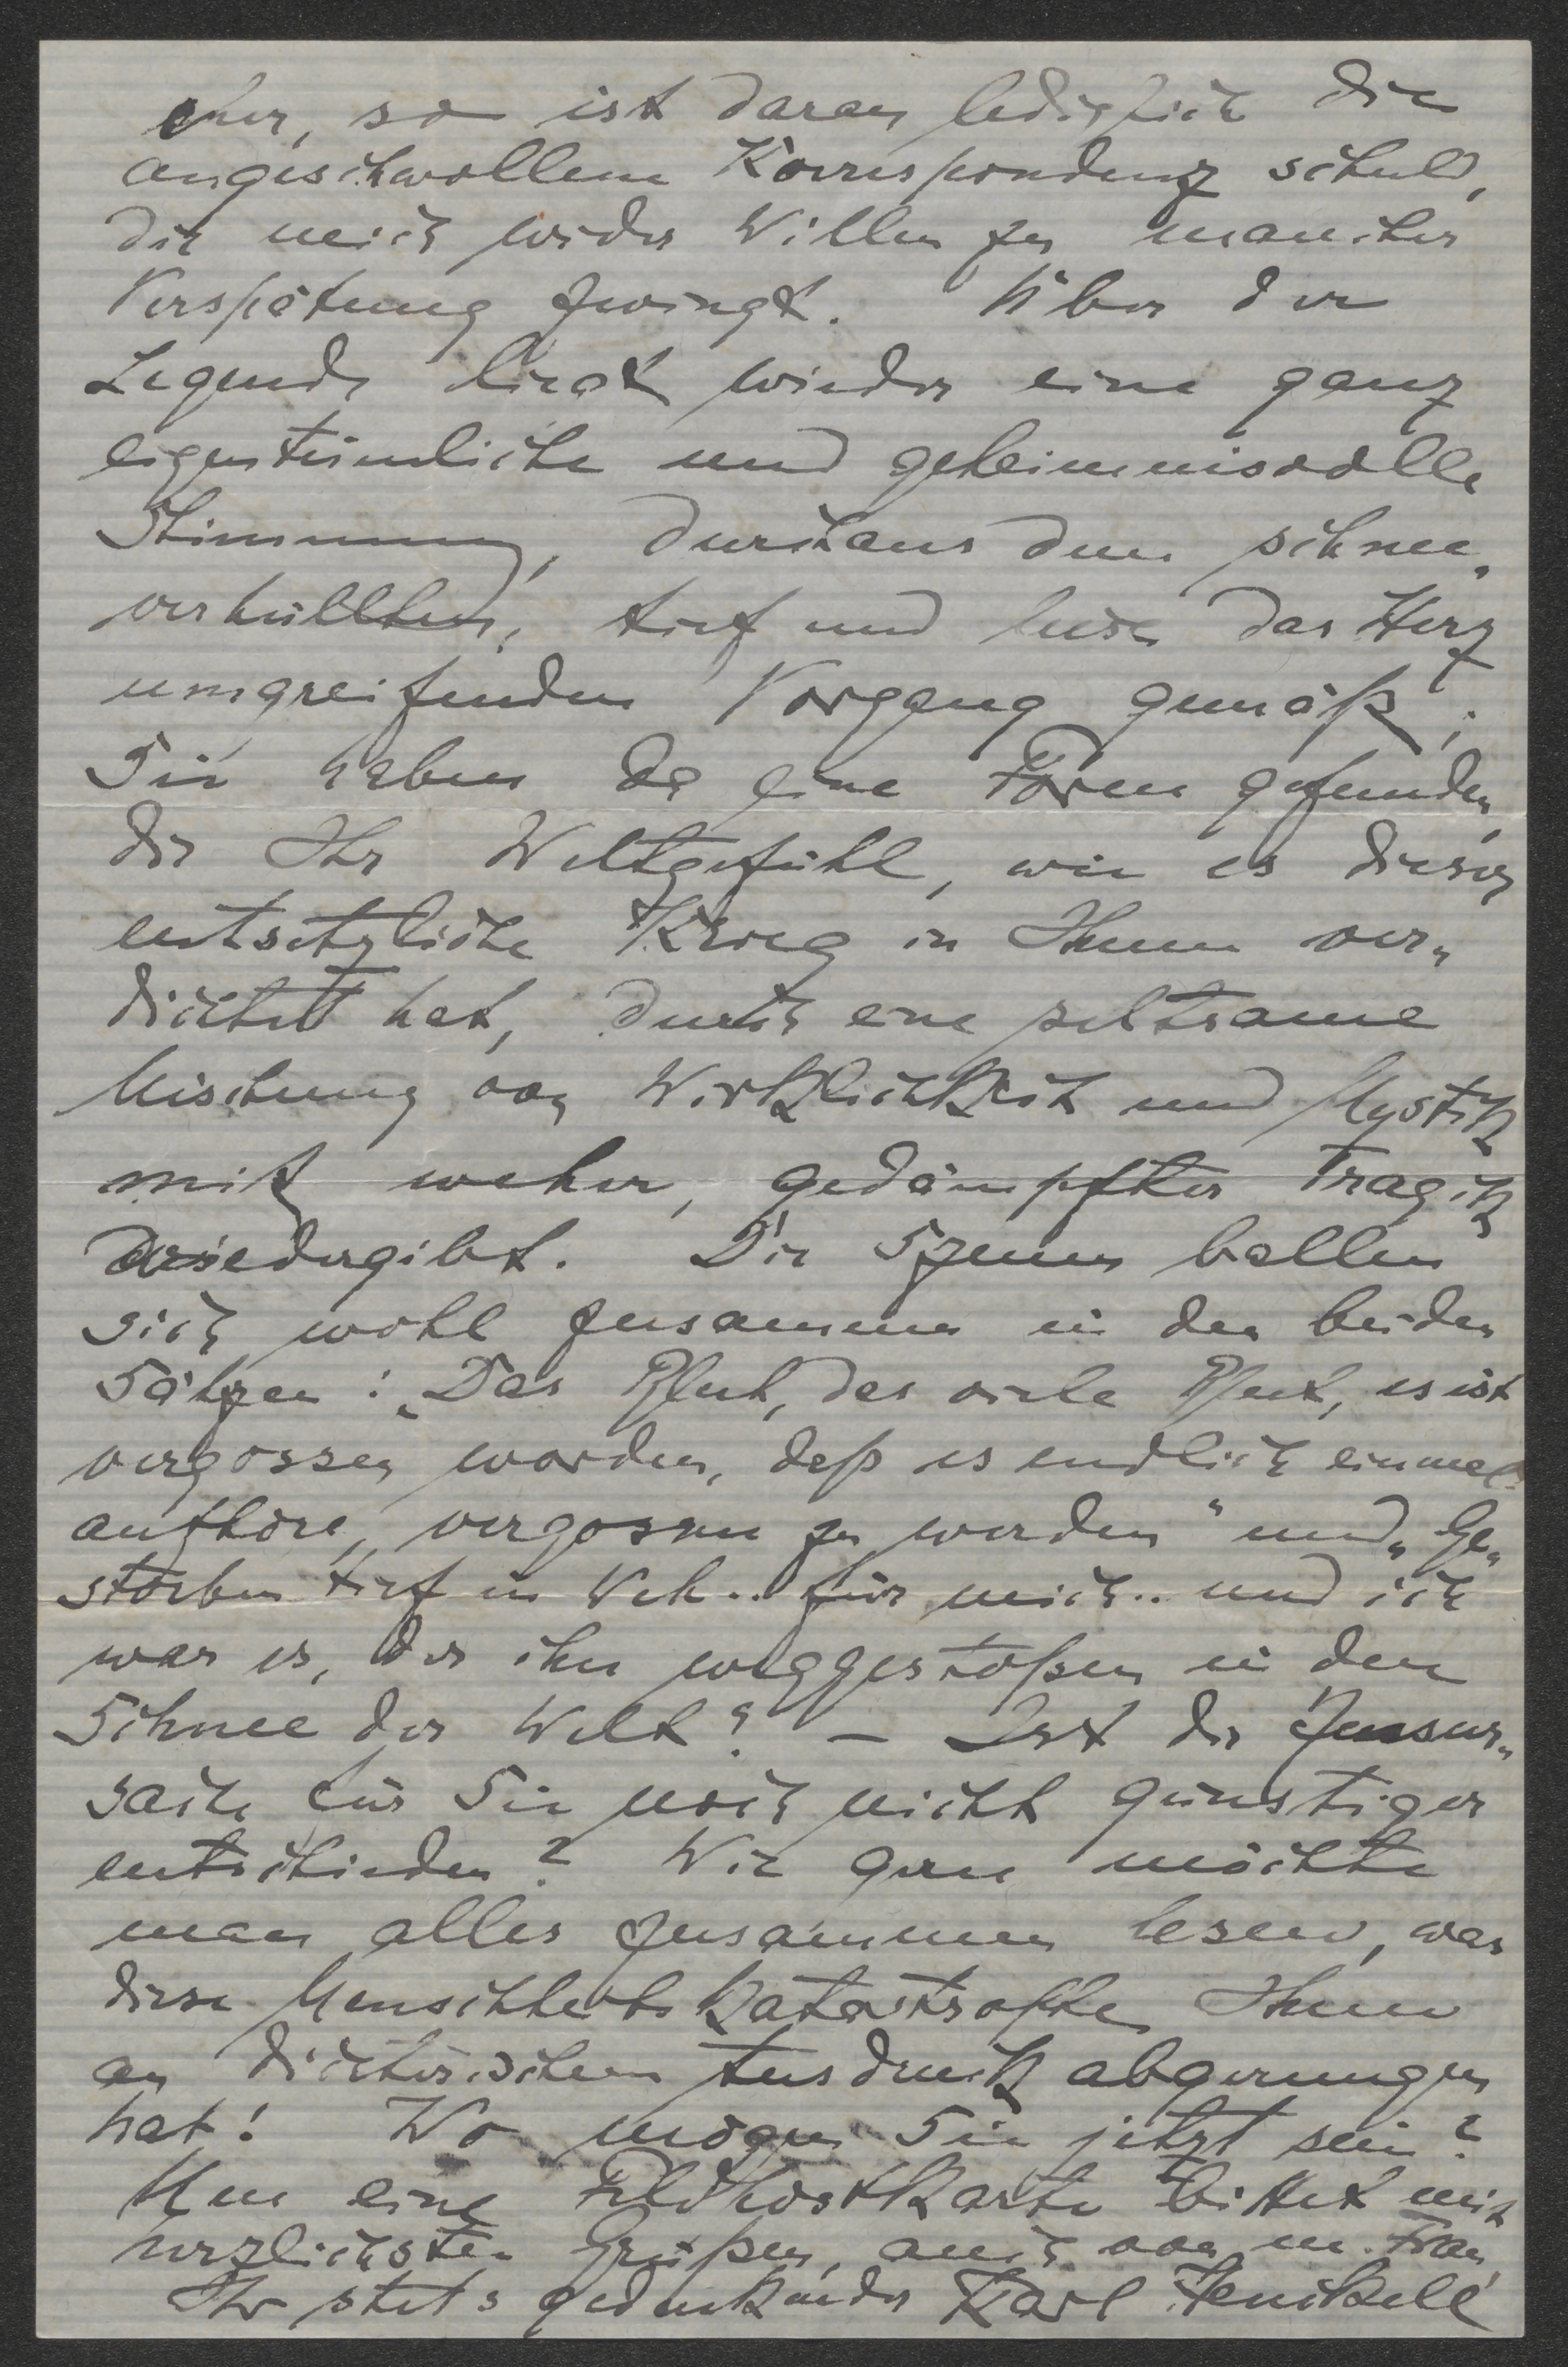 eher, so ist daran lediglich die
angeschwollene Korrespondenz schuld,
die mich wider Willen zu mancher
Verspätung zwingt. Über der
Legende liegt wieder eine ganz
eigentümliche und geheimnisvolle
Stimmung, durchaus dem schnee-
verhüllten, tief und leise das Herz
umgreifenden Vorgang gemäß;
Sie haben da eine Form gefunden,
die Ihr Weltgefühl, wie es dieser
entsetzliche Krieg in Ihnen ver-
dichtet hat, durch eine seltsame
Mischung von Wirklichkeit und Mystik
mit weher, gedämpfter Tragik
wiedergibt. Die Szenen ballen
sich wohl zusammen in den beiden
Sätzen: „Das Blut, das viele Blut, es ist
vergossen worden, daß es endlich einmal
aufhöre, vergossen zu werden" und „Ge-
storben tief in Weh.. für mich.. und ich
war es, der ihn weggestoßen in den
Schnee der Welt" – Ist die Zensur-
sache für Sie noch nicht günstiger
entschieden? Wie gern möchte
man alles zusammen lesen, was
diese Menschheitskatastrophe Ihnen
an dichterischem Ausdruck abgerungen
hat! Wo mögen Sie jetzt sein?
Um eine Feldpostkarte bittet mit
herzlichsten Grüßen, auch von m. Frau,
Ihr stets gedenkender Karl Henckell